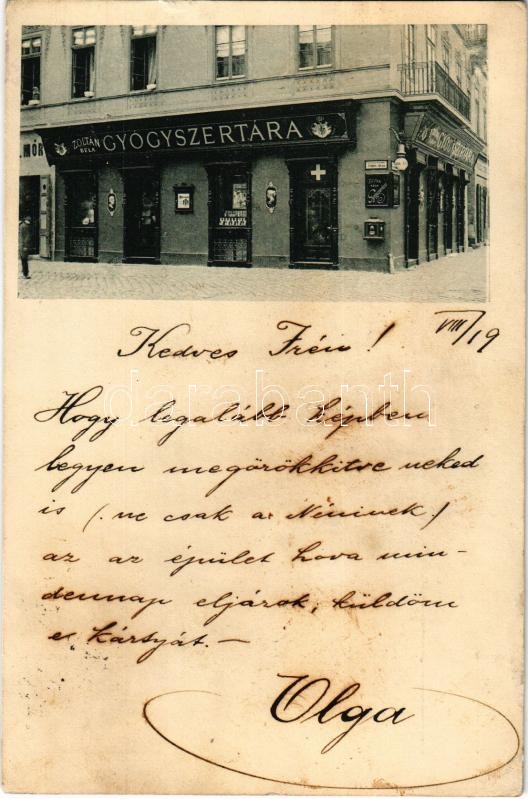 MÓR
ZOLTÁN
BÉLA
GYÓGYSZERTÁRA
VIII/19
Kedves Irén!
Hogy legalább képben
legyen megörökkitve neked
is (ne csak a Néninek)
az az épület hova min-
dennap eljárok, küldöm
e kártyát.-
Olga
darabanth